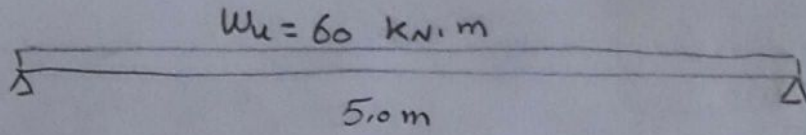 Wu = 60 KN.m
5.0 m